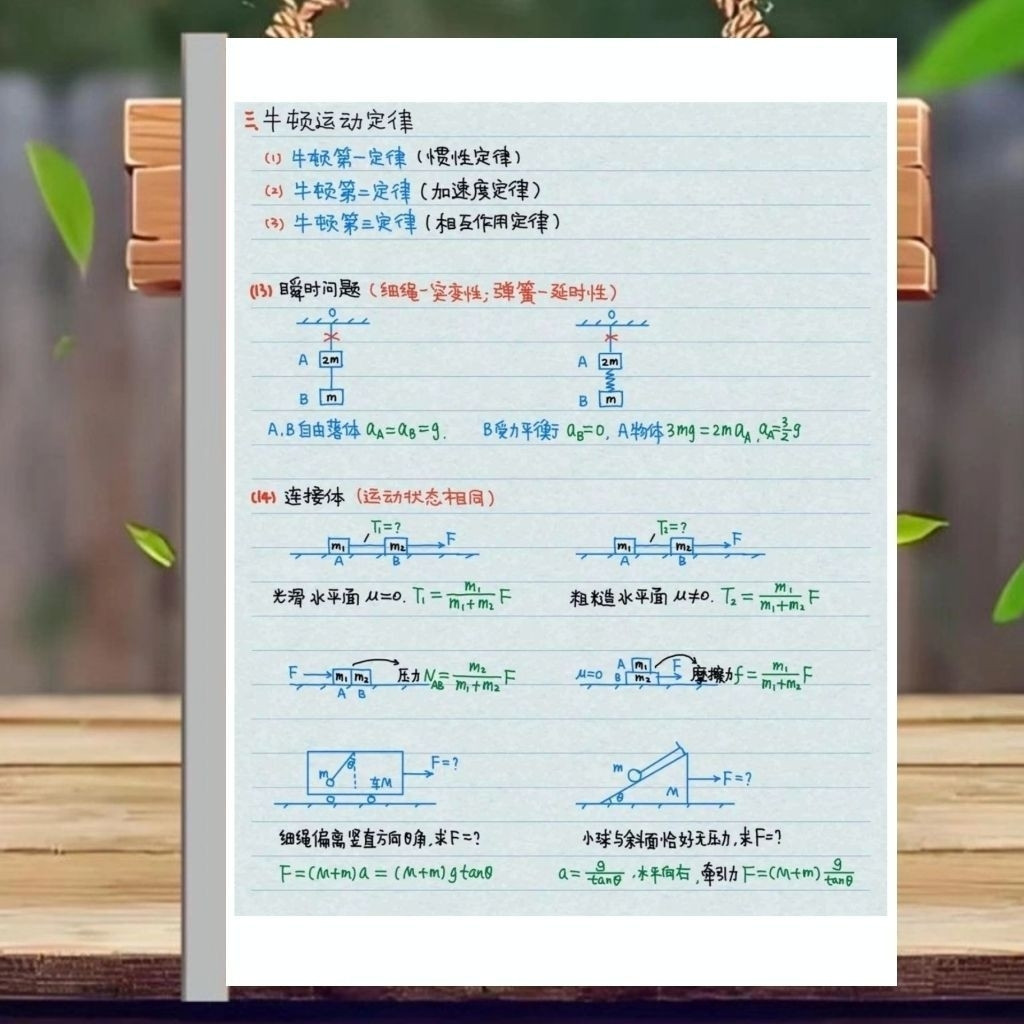 三 牛顿运动定律
(1) 牛顿第一定律（惯性定律）
(2) 牛顿第二定律（加速度定律）
(3) 牛顿第三定律（相互作用定律）
(13) 瞬时问题（细绳－突变性；弹簧－延时性）
O O
A 2m A 2m
B m B m
A.B自由落体 a_A=a_B=g. B受力平衡 a_B=0, A物体 3mg=2ma_A, a_A=3/2g
(14) 连接体（运动状态相同）
T₁=? T₂=?
m₁ m₂ F m₁ m₂ F
A B A B
光滑水平面 μ=0. T₁=m₁/(m₁+m₂)F 粗糙水平面 μ≠0. T₂=m₁/(m₁+m₂)F
F m₁ m₂ 压力 N_AB=m₂/(m₁+m₂)F μ=0 A m₁ B m₂ F 摩擦力 f=m₁/(m₁+m₂)F
A B
m θ 车M F=? m θ M F=?
细绳偏离竖直方向θ角,求F=? 小球与斜面恰好无压力,求F=?
F=(M+m)a=(M+m)gtanθ a=g/tanθ,水平向右,牵引力F=(M+m)g/tanθ